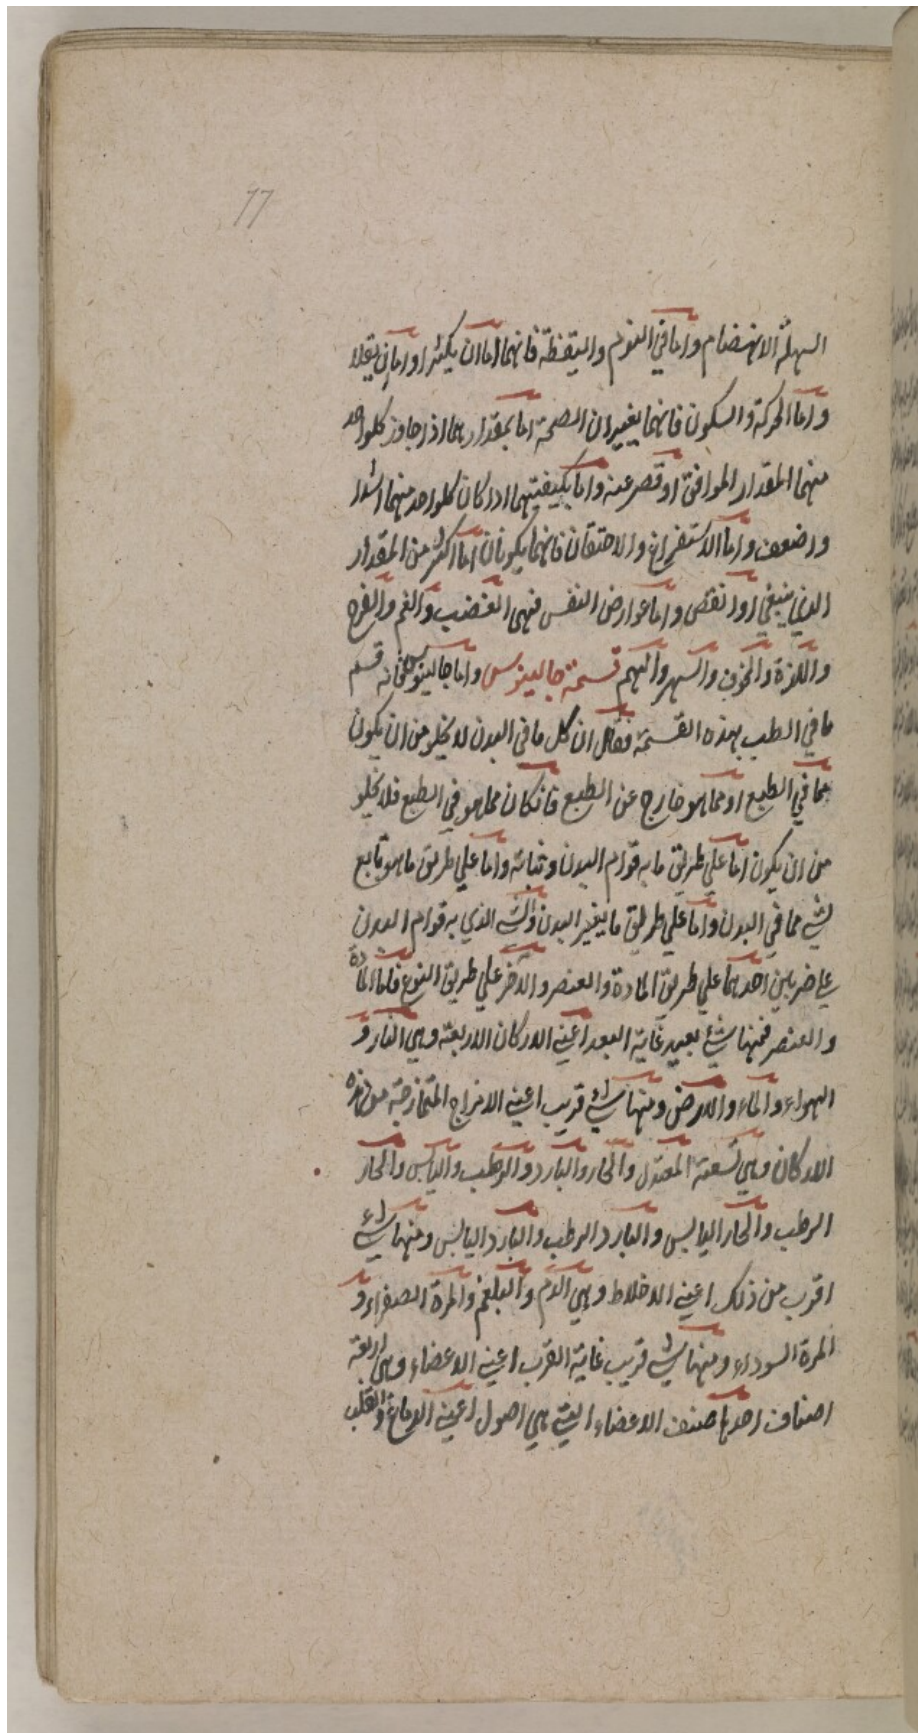 77
السهلة الانهضام واما في النوم واليقظة فانهما اما ان يكثرا واما ان يقلا
واما الحركة والسكون فانهما يغيران الصحة اما بمقدارهما اذا جاوز كلواحد
منهما المقدار الموافق او قصر عنه واما بكيفيتهما اذا كان كلواحد منهما اشد
واضعف واما الاستفراغ والاحتقان فانهما يكونان اما اكثر من المقدار
الذي ينبغي او انقص واما عوارض النفس فهي الغضب والغم والفرح
واللذة والخوف والسهر والهم قسمة جالينوس واما جالينوس فانه قسم
ما في الطب بهذه القسمة فقال ان كل ما في البدن لا يخلو من ان يكون
مما في الطبع او مما هو خارج عن الطبع فانكان مما هو في الطبع فلا يخلو
من ان يكون اما علي طريق ما به قوام البدن وثباته واما علي طريق ما هو تابع
لشي مما في البدن واما علي طريق ما يغير البدن والشي الذي به قوام البدن
علي ضربين احدهما علي طريق المادة والعنصر والاخر علي طريق النوع فاما المادة
والعنصر فمنها شي بعيد غاية البعد اعني الاركان الاربعة وهي النار و
الهواء والماء والارض ومنها شي قريب اعني الامزاج المتمازجة من هذه
الاركان وهي تسعة المعتدل والحار والبارد والرطب واليابس والحار
الرطب والحار اليابس والبارد الرطب والبارد اليابس ومنها شي
اقرب من ذلك اعني الاخلاط وهي الدم والبلغم والمرة الصفراء و
المرة السوداء ومنها شي قريب غاية القرب اعني الاعضاء وهي اربعة
اصناف احدها صنف الاعضاء التي هي اصول اعني الدماغ والقلب